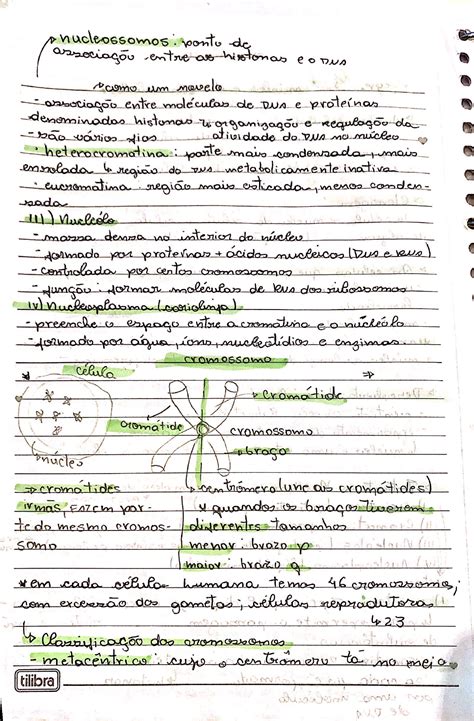 ↳ nucleossomos: ponto de
associação entre as histonas e o DNA
↳ como um novelo
- associação entre moléculas de DNA e proteínas
denominadas histonas ↳ organização e regulação da
- são vários fios atividade do DNA no núcleo
· heterocromatina: parte mais condensada, mais
enrolada ↳ região do DNA metabolicamente inativa
· eucromatina: região mais esticada, menos conden-
sada
III) Nucléolo
- massa densa no interior do núcleo
- formado por proteínas + ácidos nucleicos (DNA e RNA)
- controlada por certos cromossomos
- função: formar moléculas de RNA dos ribossomos
IV) Nucleoplasma (cariolinfa)
- preenche o espaço entre a cromatina e o nucléolo
- formado por água, íons, nucleotídios e enzimas.
cromossomo
célula
→ cromátide
cromátide
cromossomo
→ braço
núcleo
⇒ cromátides
irmãs, fazem par-
te do mesmo cromos-
somo
↳ centrômero (une as cromátides)
* quando os braços tiverem
diferentes tamanhos
menor: braço p
maior: braço q
* em cada célula humana temos 46 cromossomos,
com excessão dos gametas, células reprodutoras
↳ 23
↳ Classificação dos cromossomos
- metacêntrico: cujo o centrômero tá no meio
tilibra